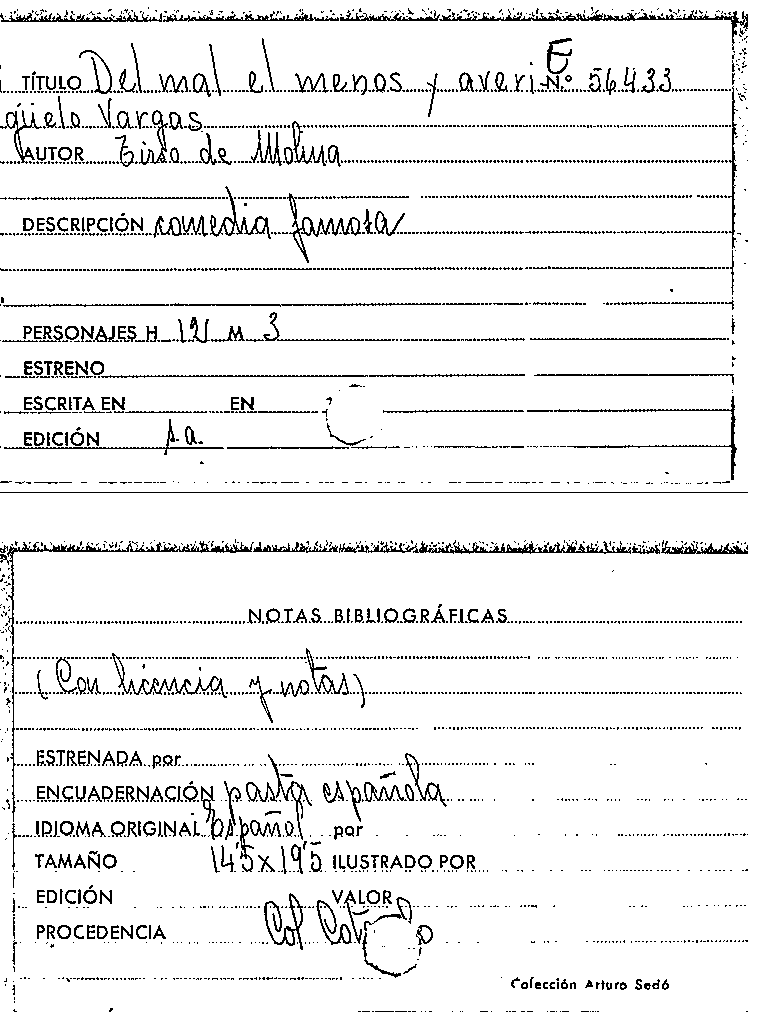 E
TÍTULO Del mal el menos y averi N.º 56433
güelo Vargas
AUTOR Tirso de Molina
DESCRIPCIÓN comedia famosa
PERSONAJES H 12 M 3
ESTRENO
ESCRITA EN EN
EDICIÓN s.a.
NOTAS BIBLIOGRÁFICAS
(Con licencia y notas)
ESTRENADA por
ENCUADERNACIÓN pasta española
IDIOMA ORIGINAL Español por
TAMAÑO 14'5 x 19'5 ILUSTRADO POR
EDICIÓN VALOR
PROCEDENCIA Col
Colección Arturo Sedó